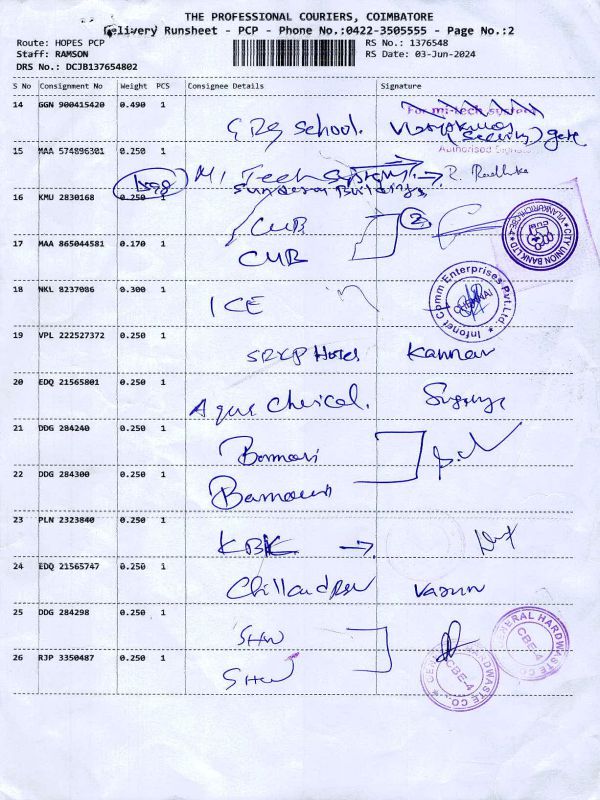 THE PROFESSIONAL COURIERS, COIMBATORE
Delivery Runsheet - PCP - Phone No.:0422-3505555 - Page No.:2
Route: HOPES PCP
Staff: RAMSON
DRS No.: DCJB137654802
RS No.: 1376548
RS Date: 03-Jun-2024
S No Consignment No Weight PCS Consignee Details Signature
14 GGN 900415420 0.490 1
GRG school. (Security) gate
For mi-tech system
15 MAA 574896301 0.250 1
Authorised
Mi Tech Systems → R. Radhika
Sundera Buildings,
16 KMU 2830168 0.250 1
CUB 2
CITY UNION BANK LTD
CUB
17 MAA 865044581 0.170 1
CUB
18 NKL 8237086 0.300 1
ICE
Infonet Comm Enterprises Pvt.Ltd.
CHENNAI
19 VPL 222527372 0.250 1
Hotel Kannan
20 EDQ 21565801 0.250 1
Aqua
21 DDG 284240 0.250 1
Bannari
22 DDG 284300 0.250 1
Bannari
23 PLN 2323840 0.250 1
KBK →
24 EDQ 21565747 0.250 1
Varun
25 DDG 284298 0.250 1
SHW
GENERAL HARDWASTE CO.
CBE-4
26 RJP 3350487 0.250 1
SHW
GENERAL HARDWASTE CO.
CBE-4